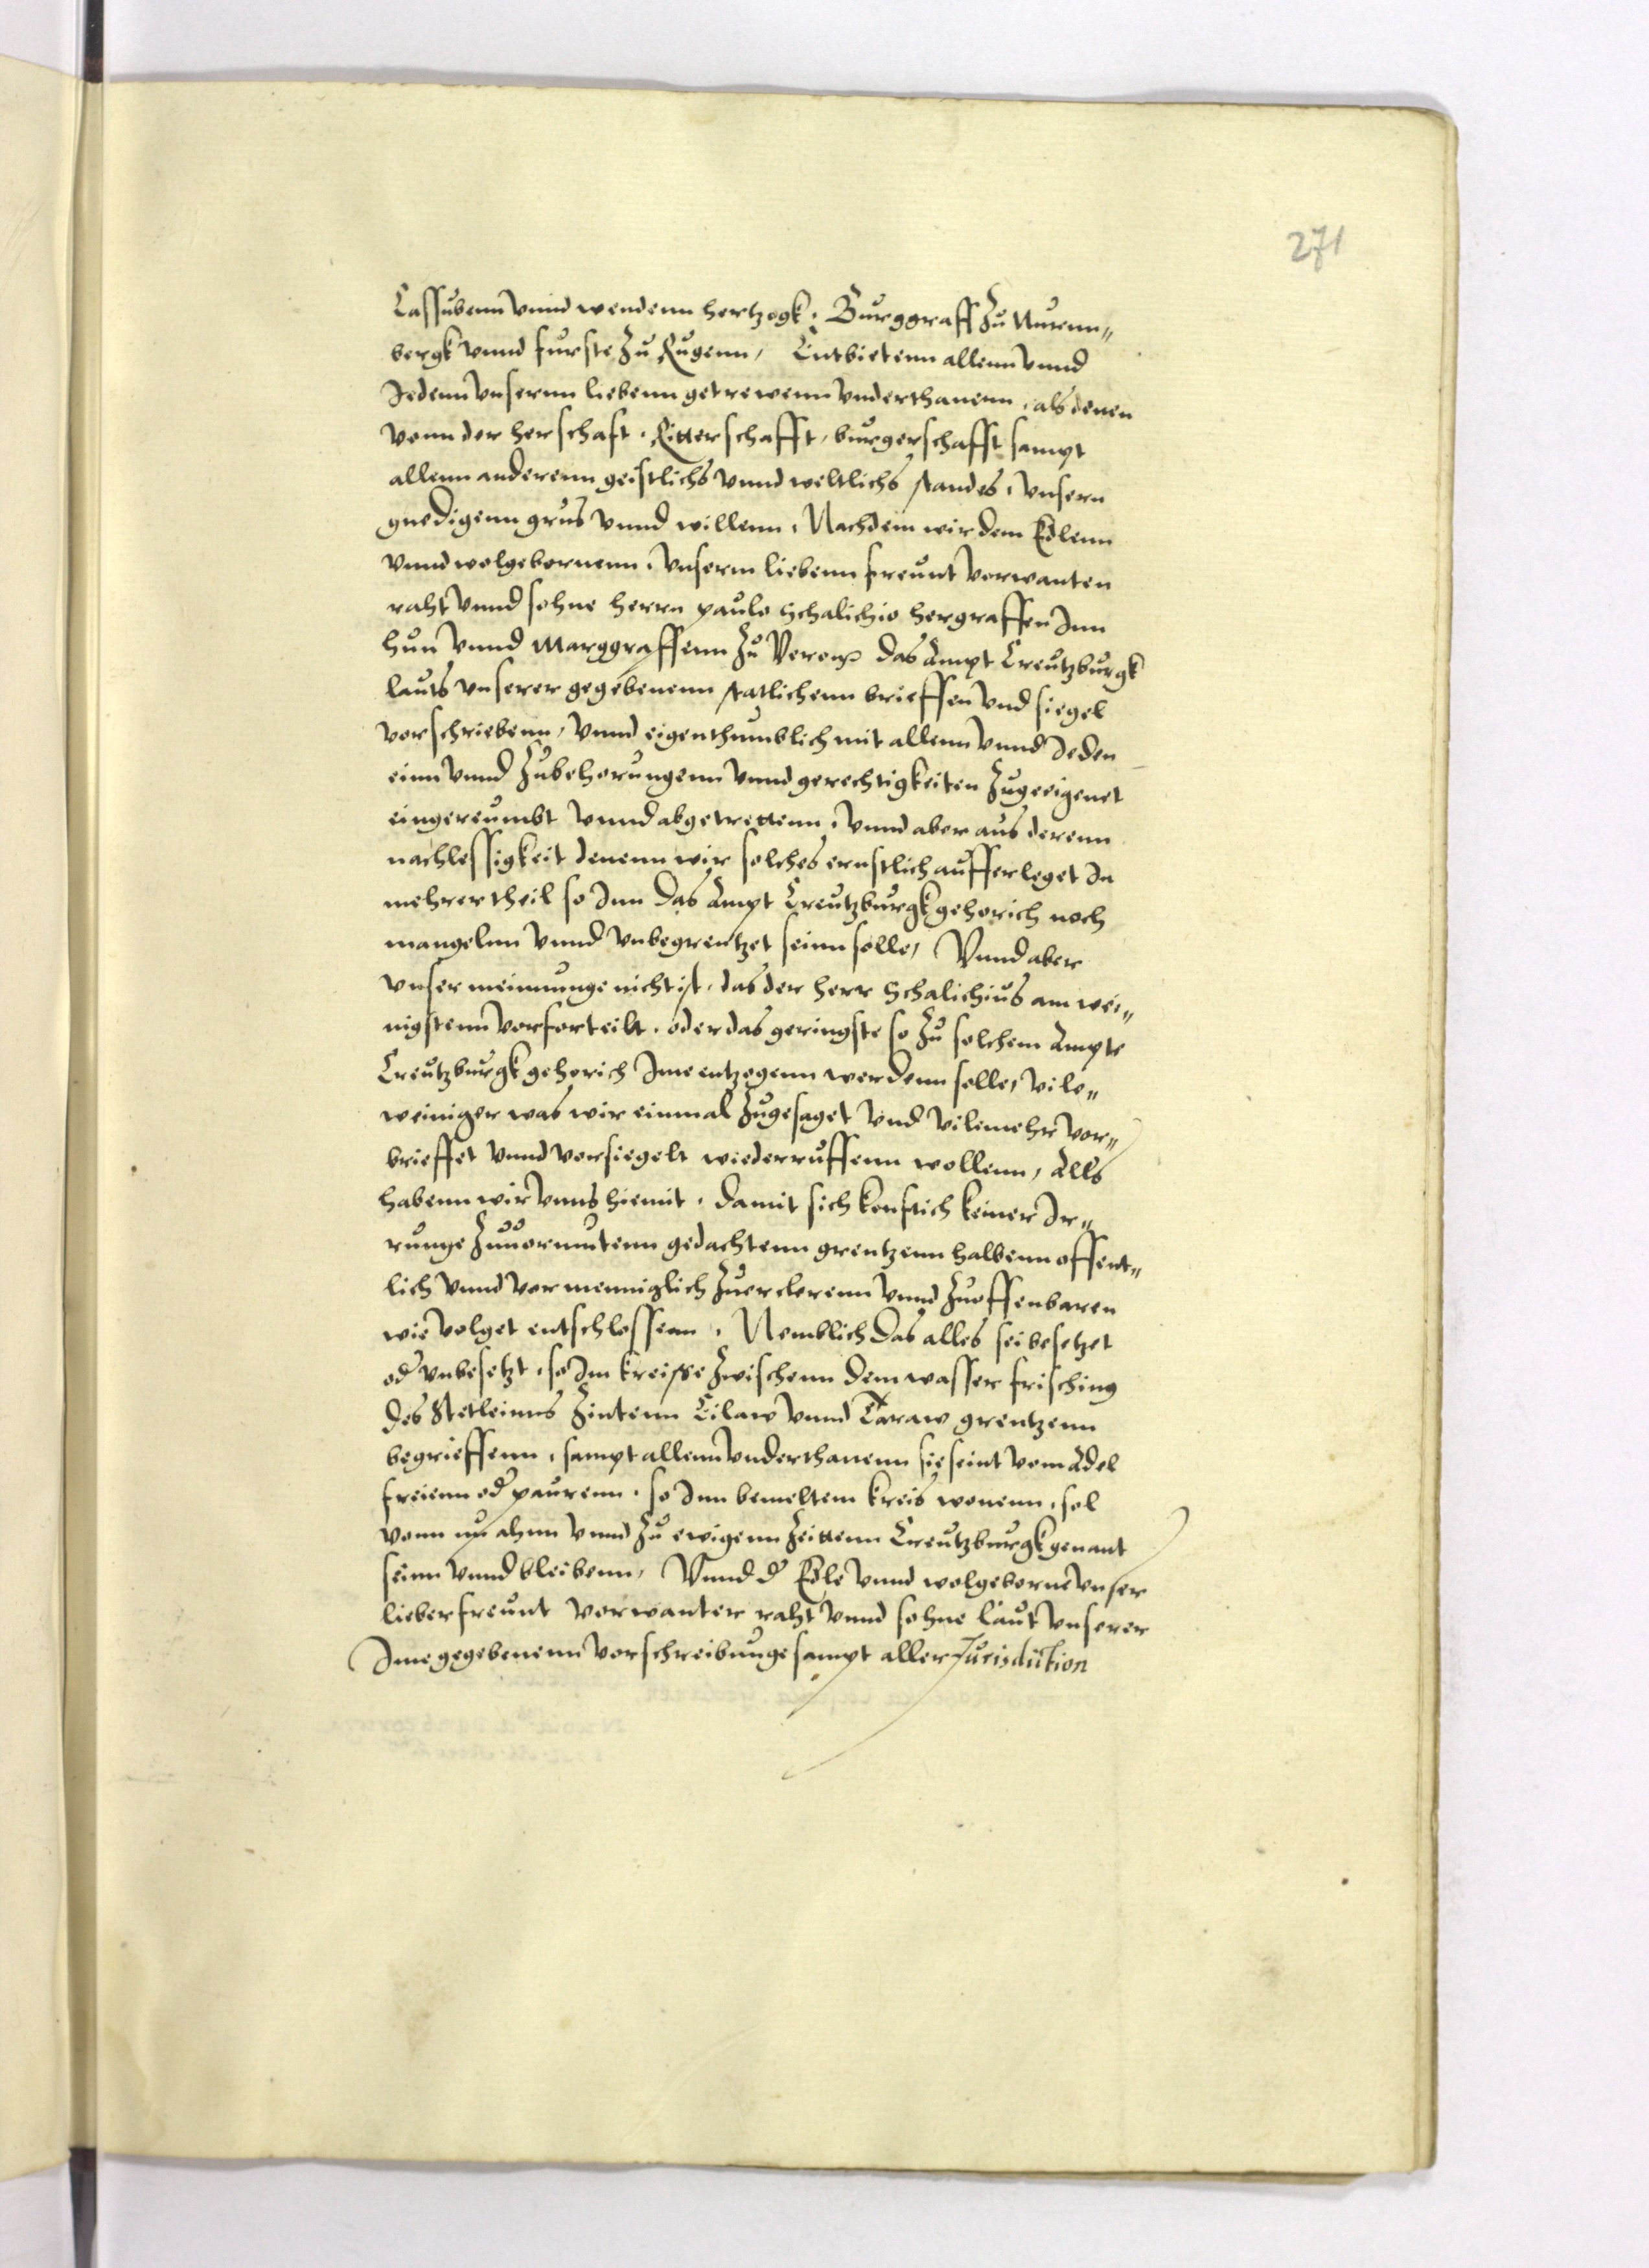 271
Cassubenn vnnd wendenn hertzogk, Burggraff zu Nurenn„
bergk vnnd furste zu Rugenn, Entbietenn allenn vnnd
Jedenn vnsernn liebenn getrewenn vnderthanenn, als denen
vonn der herschaft, Ritterschafft, burgerschafft sampt
allenn anderenn geistlichs vnnd weltlichs standes, vnsern
gnedigenn grus vnnd willenn, Nachdem wir dem Edlenn
vnnd wolgebornenn, vnserm liebenn freunt vorwanten
raht vnnd sohne herrn paulo Schalichio hergraffen Inn
hun vnnd Marggraffenn zu Verona das Ampt Creutzburgk
lauts vnserer gegebenenn statlichenn brieffen vnd siegel
vorschriebenn, vnnd eigenthumblich mit allenn vnnd Jeden
einn vnnd zubehorungenn vnnd gerechtigkeiten zugeeigenet
eingereumbt vnnd abgetrettenn, vnnd aber aus derenn
nachlessigkeit denenn wir solches ernstlich aufferleget In
mehrertheil so Inn das Ampt Creutzburgk gehorich noch
mangelnn vnnd vnbegrentzet seinn solle, Vnnd aber
vnser meinnunge nicht ist, das der herr Schalichius am wei„
nigstenn vorforteilt, oder das geringste so zu solchem Ampte
Creutzburgk gehorich Ime entzogenn werdenn solle, vile„
weiniger was wir einmal zugesaget vnd vilmehr vor„
brieffet vnnd vorsiegelt wiederruffenn wollenn, Alls
habenn wir vnns hiemit, damit sich konftich keiner Ir„
runge zuuormutenn gedachtenn grentzenn halbenn offent„
lich vnnd vor menniglich zuerclerenn vnnd zuoffenbaren
wie volget entschlossenn, Nemblich das alles sei besetzet
od vnbesetzt, so Im kreisse zwischenn dem wasser frisching
des Stetleinns Zintenn Eilaw vnnd Taraw grentzenn
begrieffenn, sampt allenn vnderthanenn sie seint vom Adel
freienn od paurenn, so Inn bemeltem kreis wonenn, sol
vonn nu ahnn vnnd zu ewigenn zeittenn Creutzburgk genant
seinn vnnd bleibenn, Vnnd d Edle vnnd wolgeborne vnser
lieber freunt vorwanter raht vnnd sohne laut vnserer
Ime gegebenenn vorschreibunge sampt aller Jurisdiction